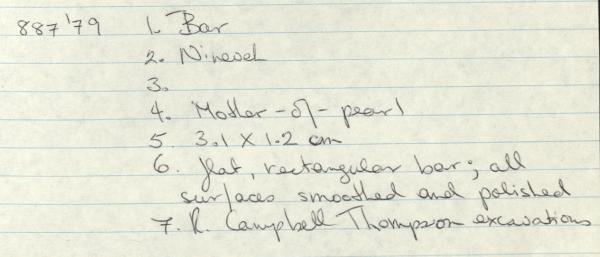 887'79 1. Bar
2. Nineveh
3.
4. Mother-of-pearl
5. 3.1 X 1.2 cm
6. flat, rectangular bar; all
surfaces smoothed and polished
7. R. Campbell Thompson excavations